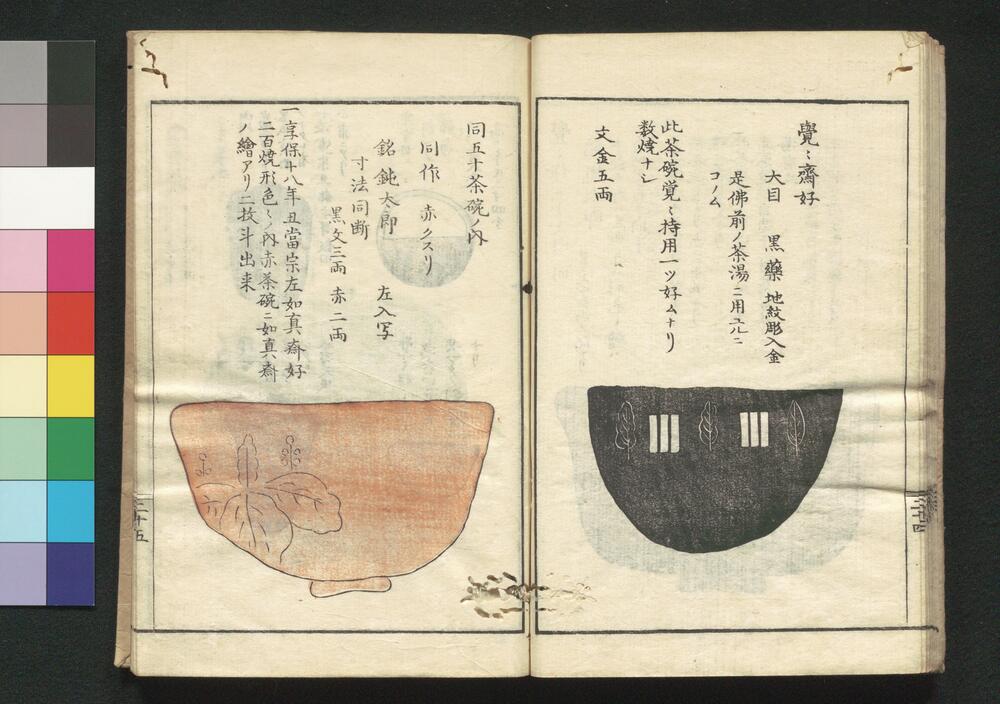 覺々齋好
大目　黒藥　地紋彫入金
是佛前ノ茶湯ニ用ユルニ
コノム
此茶碗覚々持用一ツ好ムトリ
数焼ナシ
文金五両
二十四
同五十茶碗ノ内
同作　赤クスリ
銘鈍太郎　左入写
寸法同断
黒文三両　赤二両
一享保十八年丑當宗左如真斎好
二百焼形色々ノ内赤茶碗ニ如真斎
ノ繪アリ二枚斗出来
二十五